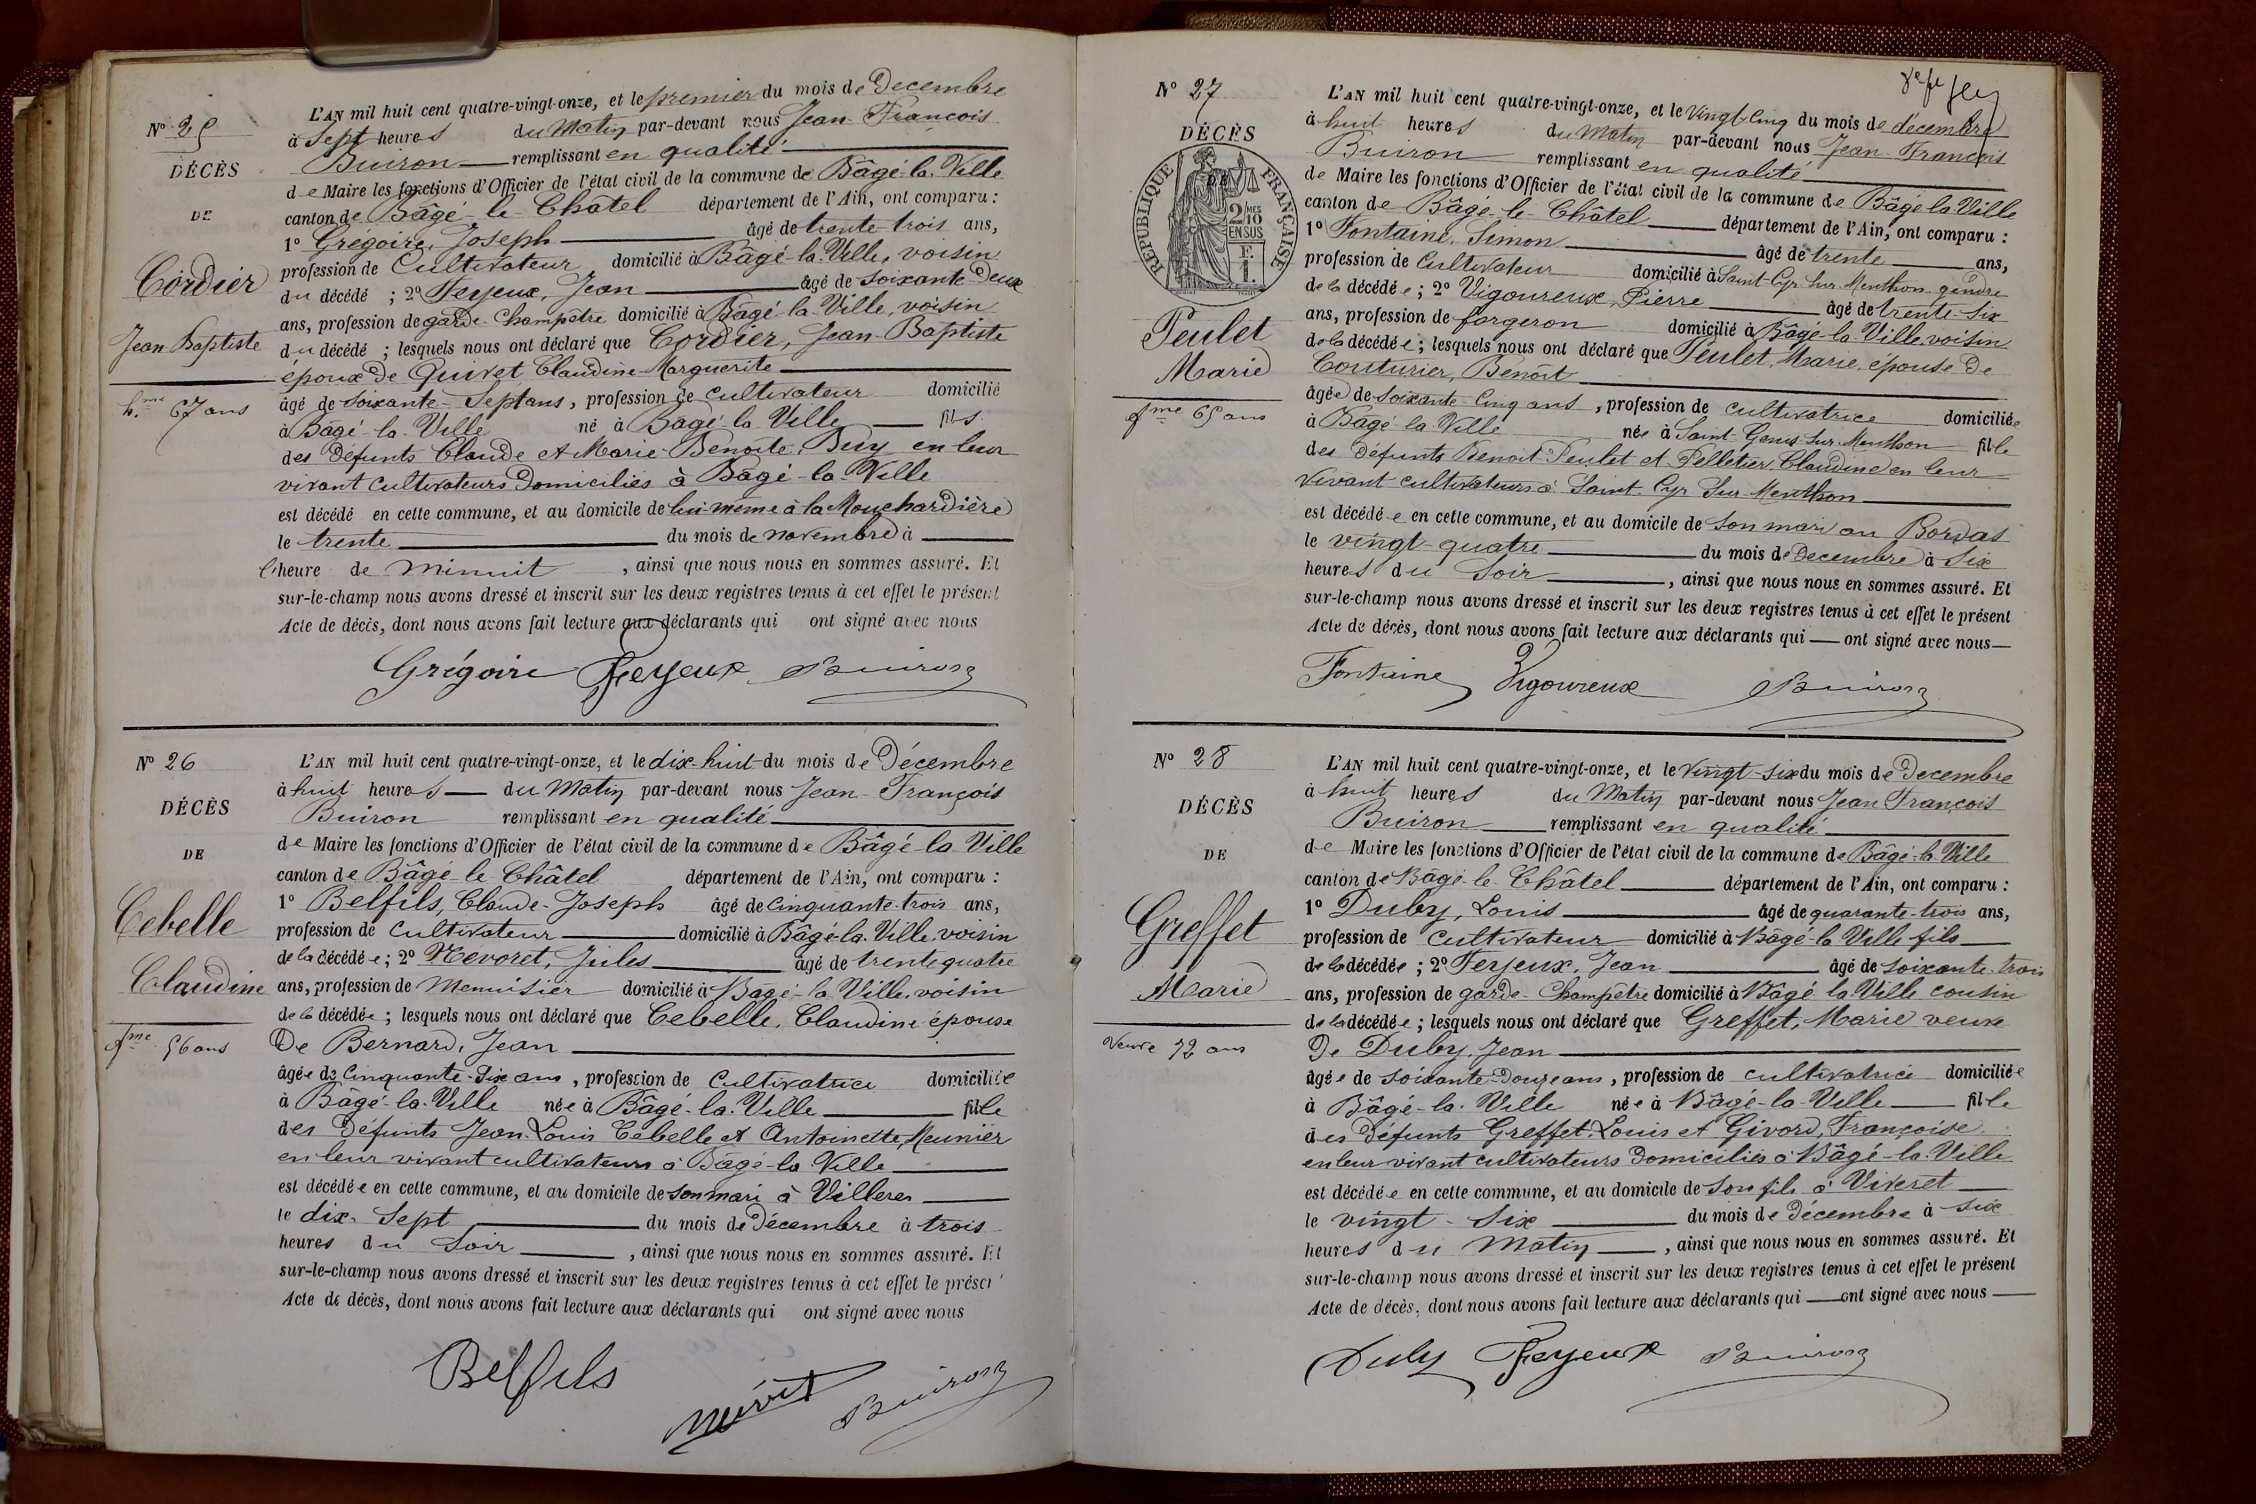 N° 25
DÉCÈS
DE
Cordier
Jean Baptiste
h.me 67 ans
L'AN mil huit cent quatre-vingt-onze, et le premier du mois de Decembre
à Sept heures du Matin par-devant nous Jean François
Buiron remplissant en qualité
de Maire les fonctions d'Officier de l'état civil de la commune de Bâgé-la-Ville
canton de Bâgé-le-Châtel département de l'Ain, ont comparu :
1° Grégoire, Joseph âgé de trente-trois ans,
profession de Cultivateur domicilié à Bâgé-la-Ville, voisin
du décédé ; 2° Feyeux, Jean âgé de soixante Deux
ans, profession de garde-Champêtre domicilié à Bâgé-la-Ville, voisin
du décédé ; lesquels nous ont déclaré que Cordier, Jean-Baptiste
époux de Quivet Claudine-Marguerite
âgé de soixante-Sept ans, profession de cultivateur domicilié
à Bâgé-la-Ville né à Bâgé-la-Ville fils
des Défunts Claude et Marie-Benoîte en leur
vivant cultivateurs Domiciliés à Bâgé-la-Ville
est décédé en cette commune, et au domicile de lui-même à la Mouchardière
le trente du mois de novembre à
l'heure de minuit , ainsi que nous nous en sommes assuré. Et
sur-le-champ nous avons dressé et inscrit sur les deux registres tenus à cet effet le présent
Acte de décès, dont nous avons fait lecture aux déclarants qui ont signé avec nous
Grégoire Feyeux Buiron
N° 26
DÉCÈS
DE
Cebelle
Claudine
fme 56 ans
L'AN mil huit cent quatre-vingt-onze, et le dix-huit du mois de Décembre
à huit heures du Matin par-devant nous Jean-François
Buiron remplissant en qualité
de Maire les fonctions d'Officier de l'état civil de la commune de Bâgé-la-Ville
canton de Bâgé-le-Châtel département de l'Ain, ont comparu :
1° Belfils, Claude-Joseph âgé de cinquante-trois ans,
profession de cultivateur domicilié à Bâgé-la-Ville, voisin
de la décédée ; 2° Nevoret, Jules âgé de trente quatre
ans, profession de Menuisier domicilié à Bâgé-la-Ville, voisin
de la décédée ; lesquels nous ont déclaré que Cebelle, Claudine épouse
De Bernard, Jean
âgée de Cinquante-Six ans, profession de cultivatrice domiciliée
à Bâgé-la-Ville née à Bâgé-la-Ville fille
des Défunts Jean-Louis Cebelle et Antoinette Meunier
en leur vivant cultivateurs à Bâgé-la-Ville
est décédée en cette commune, et au domicile de son mari à Villeres
le dix-Sept du mois de Décembre à trois
heures du Soir , ainsi que nous nous en sommes assuré. Et
sur-le-champ nous avons dressé et inscrit sur les deux registres tenus à cet effet le présen
Acte de décès, dont nous avons fait lecture aux déclarants qui ont signé avec nous
Belfils Buiron
N° 27
DÉCÈS
DE
RÉPUBLIQUE FRANÇAISE
2/10MES
EN SUS
F.
1.
Peulet
Marie
fme 65 ans
L'AN mil huit cent quatre-vingt-onze, et le Vingt-Cinq du mois de décembre
à huit heures du Matin par-devant nous Jean-François
Buiron remplissant en qualité
de Maire les fonctions d'Officier de l'état civil de la commune de Bâgé-la-Ville
canton de Bâgé-le-Châtel département de l'Ain, ont comparu :
1° Fontaine, Simon âgé de trente ans,
profession de Cultivateur domicilié à Saint-Cyr-Sur-Menthon gendre
de la décédée ; 2° Vigoureux, Pierre âgé de trente-Six
ans, profession de forgeron domicilié à Bâgé-la-Ville, voisin
de la décédée ; lesquels nous ont déclaré que Peulet, Marie, épouse De
Couturier, Benoît
âgée de soixante-Cinq ans, profession de cultivatrice domiciliée
à Bâgé-la-Ville née à Saint-Genis-Sur-Menthon fille
des Défunts Benoit Peulet et Pelletier, Claudine en leur
vivant cultivateurs à Saint-Cyr-Sur-Menthon
est décédée en cette commune, et au domicile de son mari au Bordas
le vingt-quatre du mois de Decembre à Six
heures du Soir , ainsi que nous nous en sommes assuré. Et
sur-le-champ nous avons dressé et inscrit sur les deux registres tenus à cet effet le présent
Acte de décès, dont nous avons fait lecture aux déclarants qui ont signé avec nous
Fontaine Vigoureux Buiron
N° 28
DÉCÈS
DE
Greffet
Marie
Veuve 72 ans
L'AN mil huit cent quatre-vingt-onze, et le Vingt-six du mois de Decembre
à huit heures du Matin par-devant nous Jean François
Buiron remplissant en qualité
de Maire les fonctions d'Officier de l'état civil de la commune de Bâgé-la-Ville
canton de Bâgé-le-Châtel département de l'Ain, ont comparu :
1° Duby, Louis âgé de quarante-trois ans,
profession de cultivateur domicilié à Bâgé-la-Ville fils
de la décédée ; 2° Feyeux, Jean âgé de soixante-trois
ans, profession de garde-Champêtre domicilié à Bâgé-la-Ville cousin
de la décédée ; lesquels nous ont déclaré que Greffet, Marie veuve
De Duby, Jean
âgée de soixante-Douze ans, profession de cultivatrice domiciliée
à Bâgé-la-Ville née à Bâgé-la-Ville fille
des Défunts Greffet, Louis et Givord, Françoise
en leur vivant cultivateurs Domiciliés à Bâgé-la-Ville
est décédée en cette commune, et au domicile de Son fils à Viveret
le vingt-Six du mois de Décembre à six
heures du Matin , ainsi que nous nous en sommes assuré. Et
sur-le-champ nous avons dressé et inscrit sur les deux registres tenus à cet effet le présent
Acte de décès, dont nous avons fait lecture aux déclarants qui ont signé avec nous
Duby Feyeux Buiron